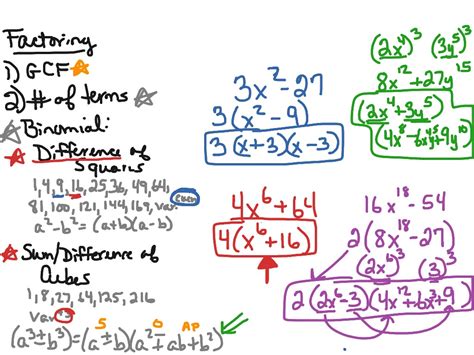 Factoring
1) GCF
2) # of terms
Binomial:
Difference of
Squares
1, 4, 9, 16, 25, 36, 49, 64,
81, 100, 121, 144, 169, var. even
a² - b² = (a+b)(a-b)
Sum/Difference of
Cubes
1, 8, 27, 64, 125, 216
var 3
S O AP
(a³ ± b³) = (a ± b)(a² ∓ ab + b²)
3x² - 27
3(x² - 9)
3(x+3)(x-3)
4x⁶ + 64
4(x⁶ + 16)
(2x⁴)³ (3y⁵)³
8x¹² + 27y¹⁵
(2x⁴ + 3y⁵)
(4x⁸ - 6x⁴y⁵ + 9y¹⁰)
16x¹⁸ - 54
2(8x¹⁸ - 27)
(2x⁶)³ (3)³
2(2x⁶ - 3)(4x¹² + 6x⁶ + 9)